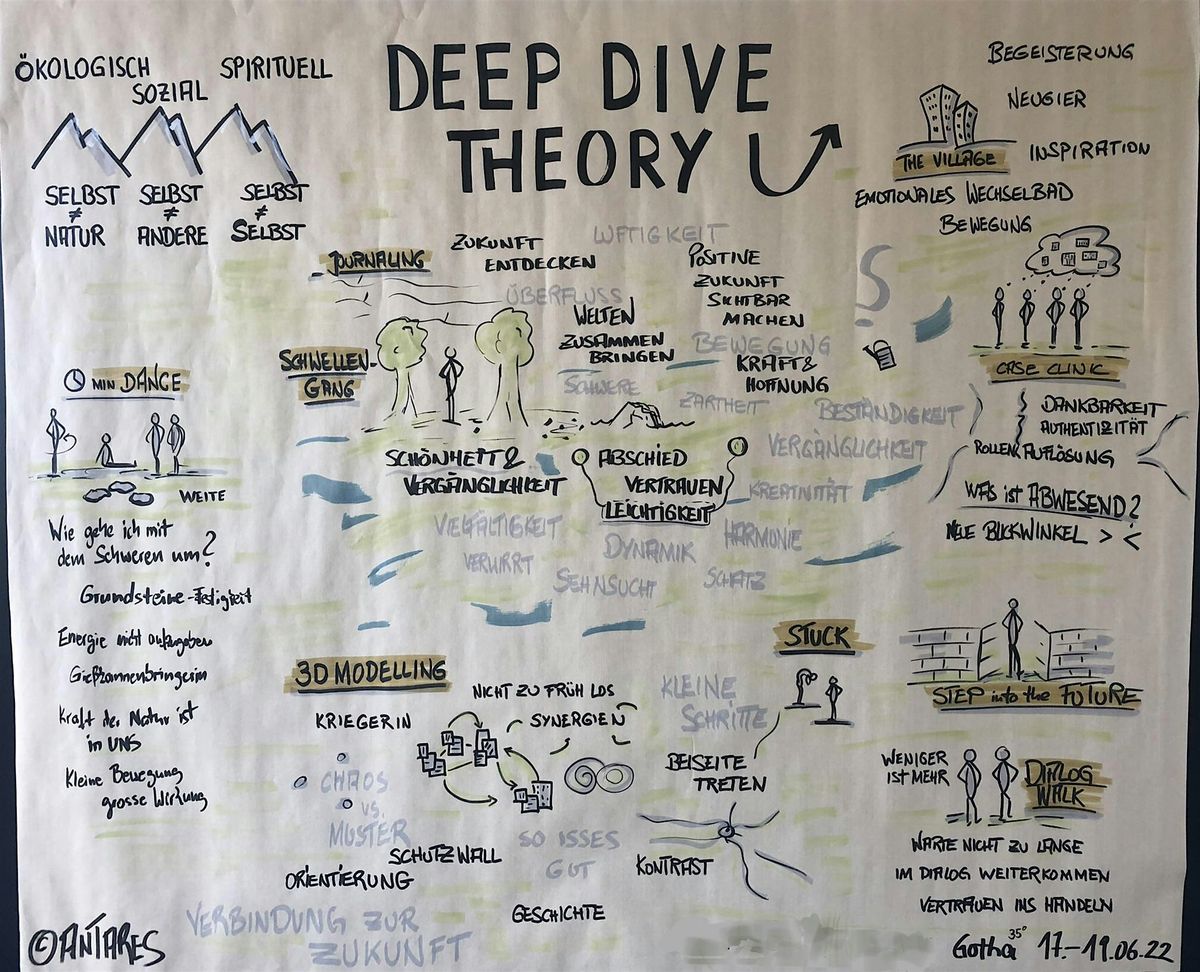 DEEP DIVE
THEORY
ÖKOLOGISCH
SOZIAL
SPIRITUELL
SELBST
≠
NATUR
SELBST
≠
ANDERE
SELBST
≠
SELBST
BEGEISTERUNG
NEUGIER
INSPIRATION
THE VILLAGE
EMOTIONALES WECHSELBAD
BEWEGUNG
JOURNALING
ZUKUNFT
ENTDECKEN
LUFTIGKEIT
POSITIVE
ZUKUNFT
SICHTBAR
MACHEN
ÜBERFLUSS
WELTEN
ZUSAMMEN
BRINGEN
BEWEGUNG
KRAFT &
HOFFNUNG
SCHWELLEN-
GANG
SCHWERE
ZARTHEIT
BESTÄNDIGKEIT
VERGÄNGLICHKEIT
SCHÖNHEIT &
VERGÄNGLICHKEIT
ABSCHIED
VERTRAUEN
LEICHTIGKEIT
KREATIVITÄT
VIELFÄLTIGKEIT
DYNAMIK
HARMONIE
VERWIRRT
SEHNSUCHT
SCHATZ
CASE CLINIC
DANKBARKEIT
AUTHENTIZITÄT
ROLLEN AUFLÖSUNG
WAS ist ABWESEND?
NEUE BLICKWINKEL > <
MIN DANCE
WEITE
Wie gehe ich mit
dem Schweren um?
Grundsteine-Festigkeit
Energie nicht aufzugeben
Gießkannenbringerin
Kraft der Natur ist
in UNS
Kleine Bewegung
grosse Wirkung
3D MODELLING
NICHT ZU FRÜH LOS
KRIEGERIN
SYNERGIEN
CHAOS
vs.
MUSTER
SCHUTZWALL
ORIENTIERUNG
SO ISSES
GUT
GESCHICHTE
VERBINDUNG ZUR
ZUKUNFT
STUCK
KLEINE
SCHRITTE
BEISEITE
TRETEN
KONTRAST
STEP into the FUTURE
WENIGER
IST MEHR
DIALOG
WALK
WARTE NICHT ZU LANGE
IM DIALOG WEITERKOMMEN
VERTRAUEN INS HANDELN
©ANTARES
Gotha 35° 17.-19.06.22